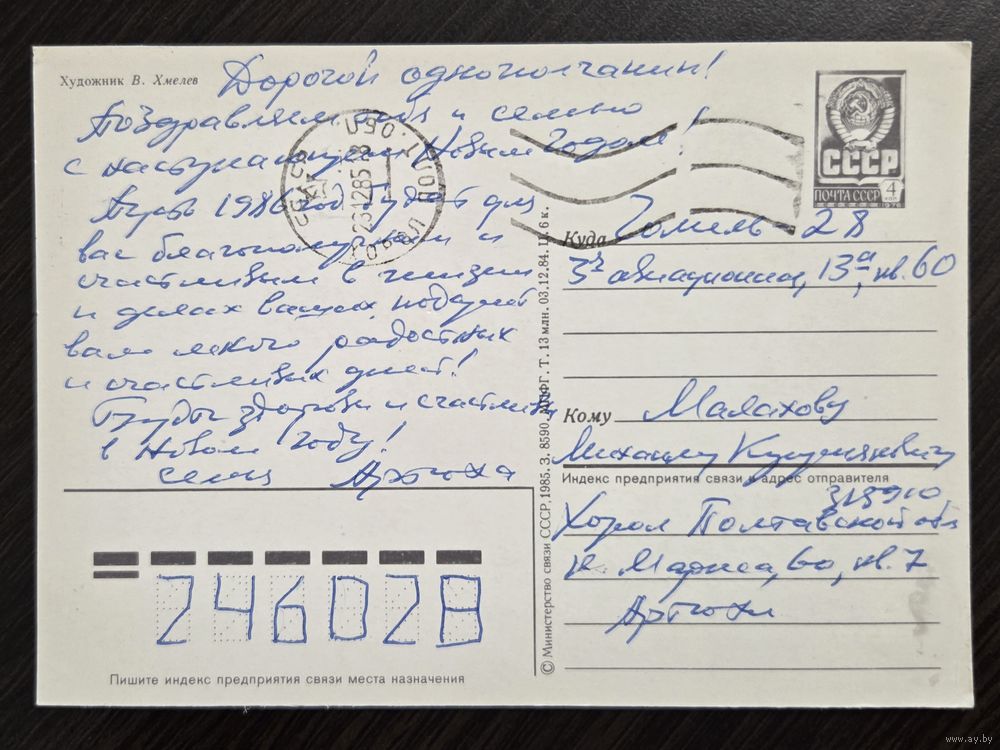 Художник В. Хмелев
Дорогой однополчанин!
Поздравляем тебя и семью
с наступающим Новым годом!
Пусть 1986 год будет для
вас благополучным и
счастливым в жизни
и делах ваших, подарит
вам много радостных
и счастливых дней!
Будьте здоровы и счастливы
в Новом году!
семья Артюха
23 12 85
СССР
ПОЧТА СССР
4
коп
1978
Куда Гомель - 28
3я авиационная, 13а, кв. 60
Кому Малахову
Михаилу
Индекс предприятия связи и адрес отправителя
Хорол Полтавской обл
К. Маркса, 60, кв. 7
Артюхи
246028
Пишите индекс предприятия связи места назначения
© Министерство связи СССР, 1985. З. 8590. ППФГ. Т. 13 млн. 03.12.84. Ц. 6 к.
www.ay.by